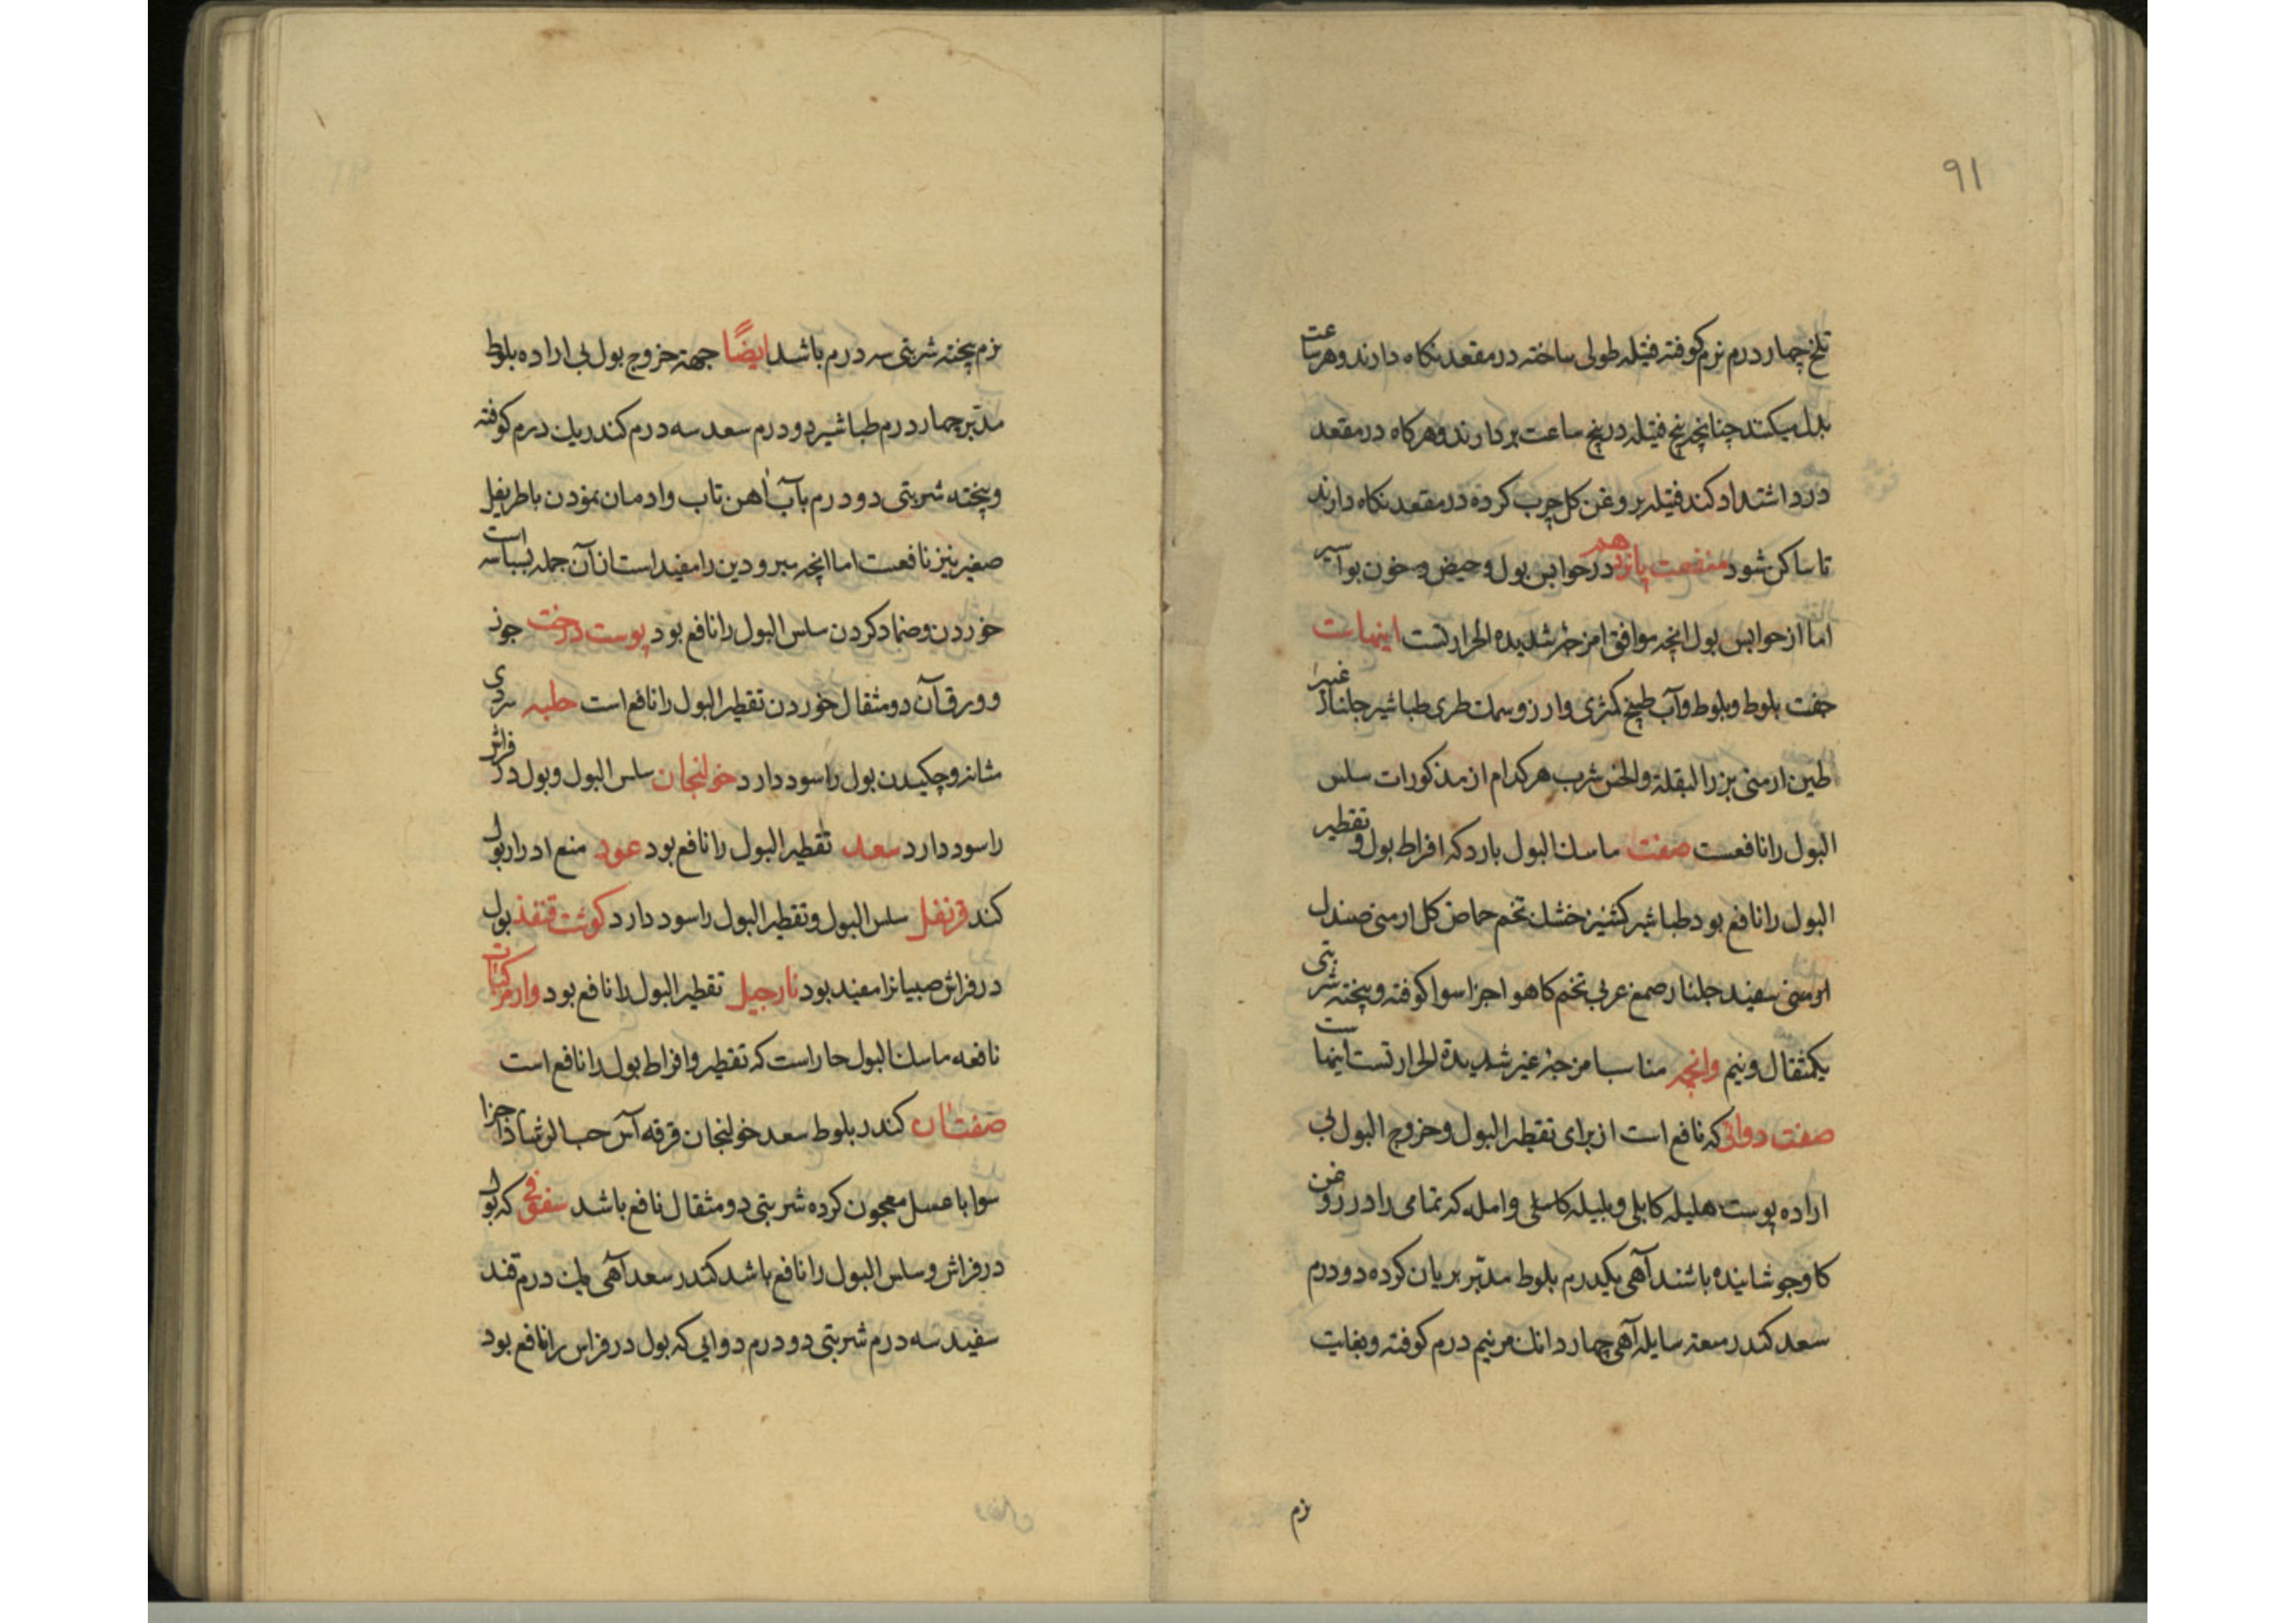 ۹۱
تلخ چهار درم نرم کوفته فتیله طولی ساخته در مقعد نکاه دارند و هر ساعت
بدل میکنند چنانچه پنج فتیله در پنج ساعت بردارند و هرکاه در مقعد
درد اشتداد کند فتیله بروغن کل چرب کرده در مقعد نکاه دارند
تا ساکن شود منفعت پانزدهم در حوابس بول و حیض و خون بواسیر
اما از حوابس بول انچه موافق امزجه شدیده الحرارتست اینهاست
جفت بلوط و بلوط و آب طبیخ کمثری و ارز و سمک طری طباشیر جلنار
طین ارمنی بزر البقلة والخس شرب هر کدام از مذکورات سلس
البول را نافعست صفت ماسک البول بارد که افراط بول و تقطیر
البول را نافع بود طباشیر کشنیز خشک تخم حماض کل ارمنی صندل
ارمنی سفید جلنار صمغ عربی تخم کاهو اجزا سوا کوفته و پخته شربتی
یکمثقال و نیم وانچه مناسب امزجه غیر شدیدة الحرارتست اینها
صفت دوائی که نافع است از برای تقطیر البول و خروج البول بی
اراده پوست هلیله کابلی و بلیله کاسلی و امله که تمامی را در روغن
کاو جوشانیده باشند آهی یکدرم بلوط مدبر بریان کرده دو درم
سعد کندر میعه سایله آهی چهار دانک مر نیم درم کوفته و بغایت
نرم
نرم پخته شربتی سه درم باشد ایضًا جهة خروج بول بی اراده بلوط
مدبر چهار درم طباشیر دو درم سعد سه درم کندر یک درم کوفته
و پخته شربتی دو درم بآب آهن تاب وادمان نمودن باطریفل
صغیر نیز نافعست اما انچه مبرودین را مفید است از آن جمله بسباسه است
خوردن و ضماد کردن سلس البول را نافع بود پوست درخت جوز
و ورق آن دو مثقال خوردن تقطیر البول را نافع است حلبه سردی
مثانه و چکیدن بول را سود دارد خولنجان سلس البول و بول در فراش
را سود دارد سعد تقطیر البول را نافع بود عود منع ادرار بول
کند قرنفل سلس البول و تقطیر البول را سود دارد کوشت قنفذ بول
در فراش صبیانرا مفید بود نارجیل تقطیر البول را نافع بود و از مرکبات
نافعه ماسک البول حار است که تقطیر و افراط بول را نافع است
صفت آن کندر بلوط سعد خولنجان قرفه آس حب الرشاد اجزا
سوا با عسل معجون کرده شربتی دو مثقال نافع باشد سفوفی که بول
در فراش و سلس البول را نافع باشد کندر سعد آهی یک درم قند
سفید سه درم شربتی دو درم دوایی که بول در فراس را نافع بود